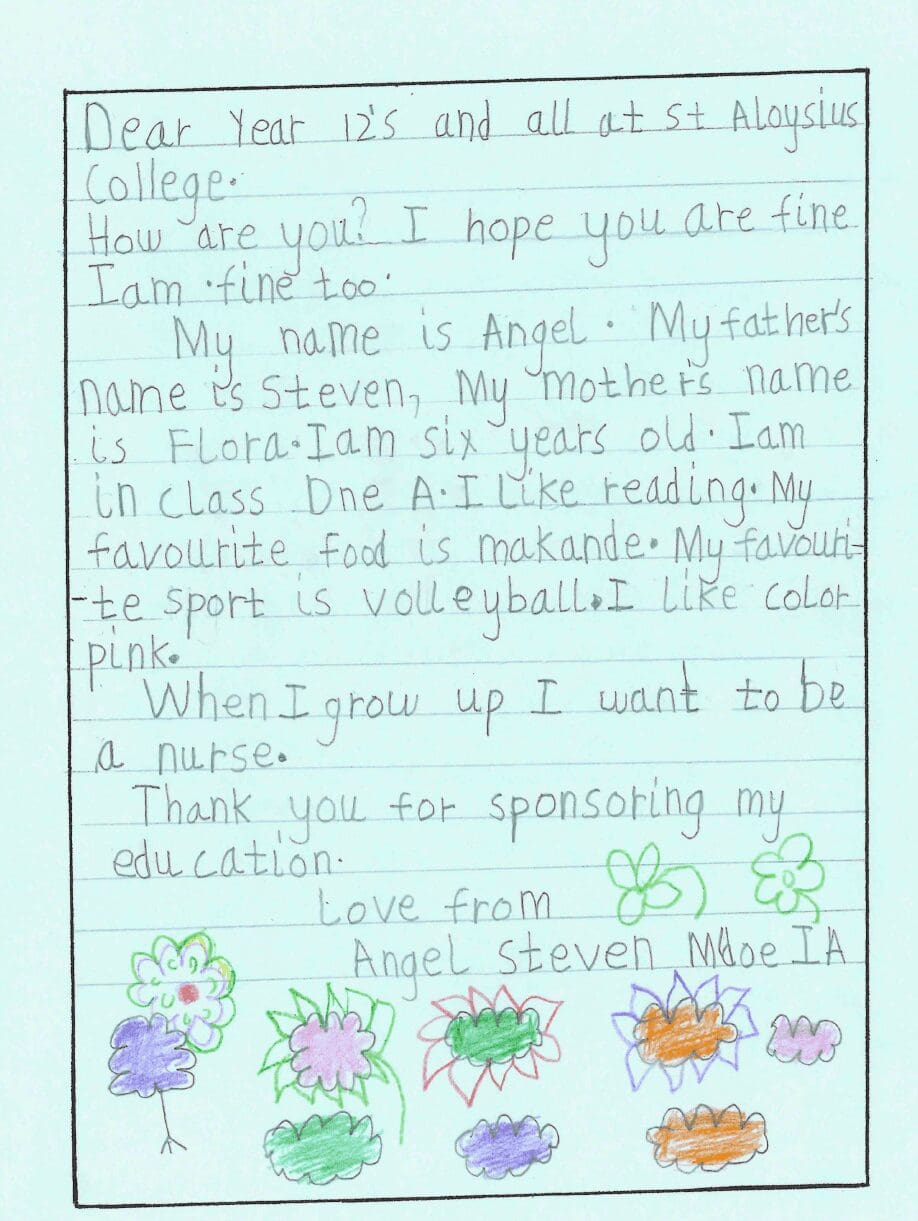 Dear Year 12's and all at St Aloysius
College.
How are you? I hope you are fine
I am fine too.
My name is Angel. My father's
name is Steven, My mother's name
is Flora. I am six years old. I am
in class One A. I Like reading. My
favourite food is makande. My favouri-
-te sport is volleyball. I like color
pink.
When I grow up I want to be
a nurse.
Thank you for sponsoring my
education.
Love from
Angel Steven IA